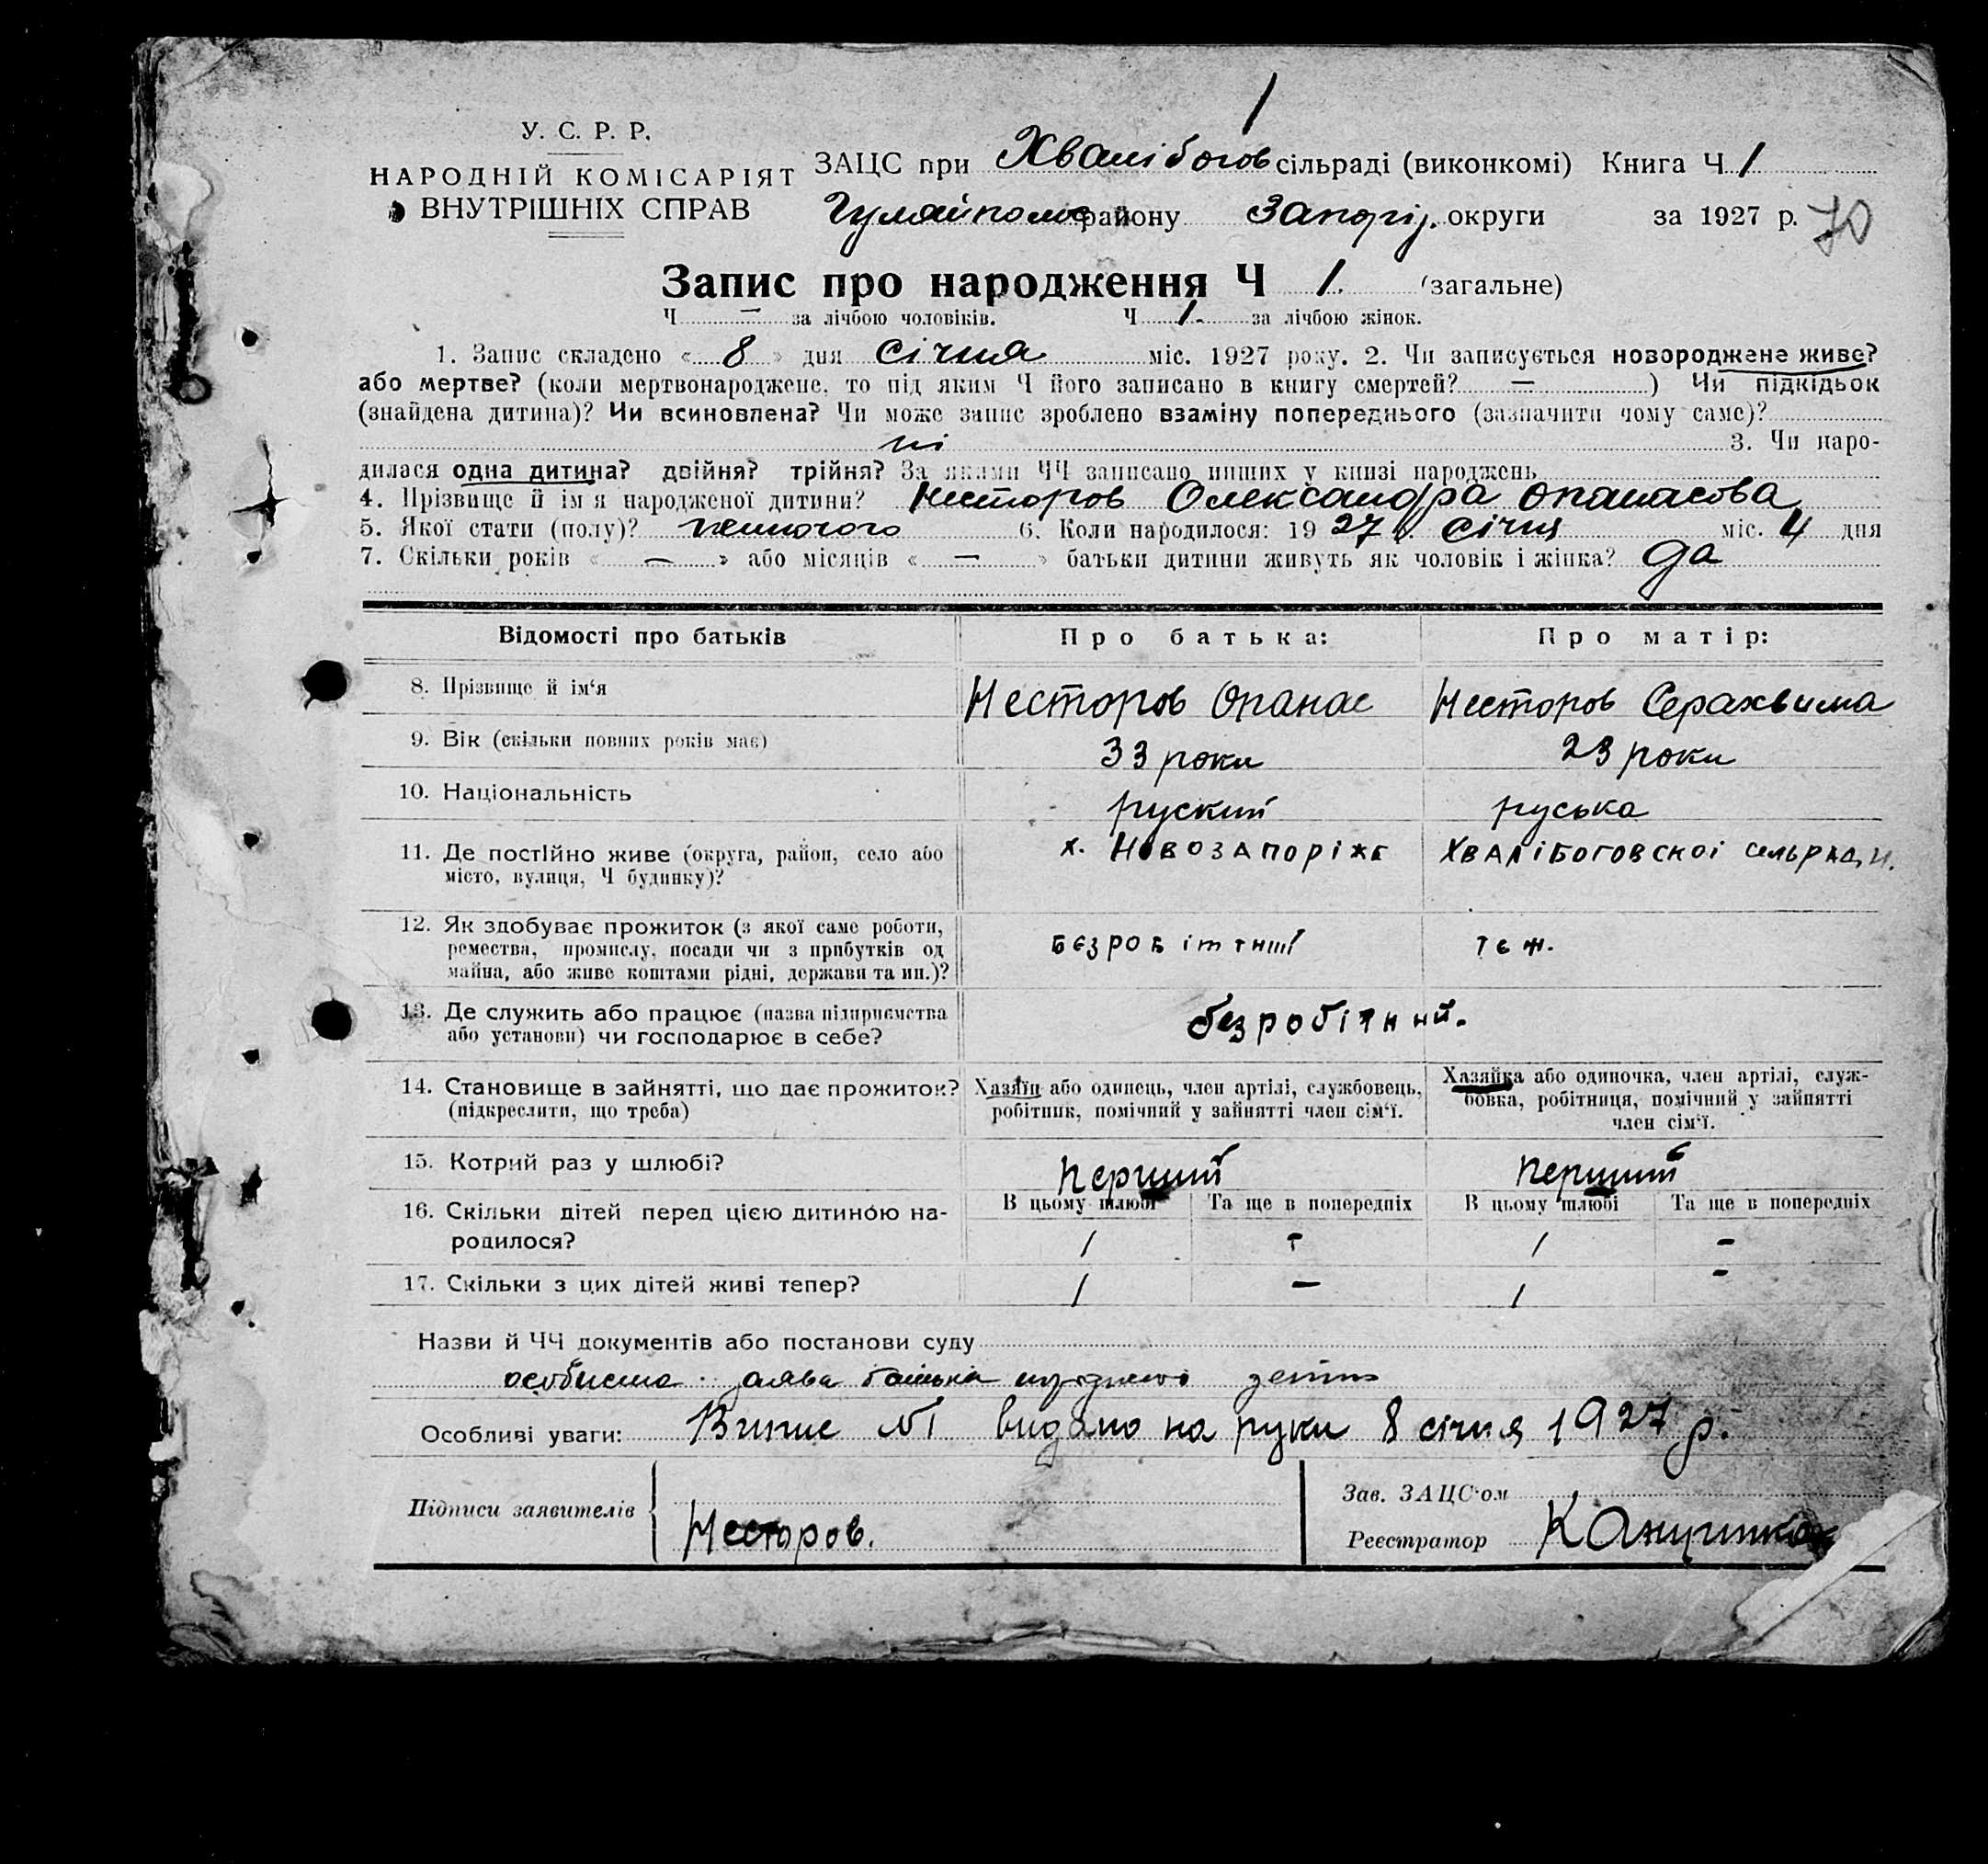 1
У. С. Р. Р.
НАРОДНІЙ КОМІСАРІЯТ
ВНУТРІШНІХ СПРАВ
ЗАЦС при Хвалібогов сільраді (виконкомі) Книга Ч 1
Гуляйполє району Запоріз. округи за 1927 р. 70
Запис про народження Ч 1. (загальне)
Ч — за лічбою чоловіків. Ч 1. за лічбою жінок.
1. Запис складено « 8 » дня січня міс. 1927 року. 2. Чи записується новороджене живе?
або мертве? (коли мертвонароджене, то під яким Ч його записано в книгу смертей? — ) Чи підкідьок
(знайдена дитина)? Чи всиновлена? Чи може запис зроблено взаміну попереднього (зазначити чому саме)?
ні 3. Чи наро-
дилася одна дитина? двійня? трійня? За якими ЧЧ записано инших у книзі народжень
4. Прізвище й ім'я народженої дитини? Несторов Олександра опанасова
5. Якої стати (полу)? жіночого 6. Коли народилося: 1927 р. січня міс. 4 дня
7. Скільки років « — » або місяців « — » батьки дитини живуть як чоловік і жінка? да
Відомості про батьків Про батька: Про матір:
8. Прізвище й ім'я Несторов Опанас Несторов Серахвима
9. Вік (скільки повних років має) 33 роки 23 роки
10. Національність руский руська
11. Де постійно живе (округа, район, село або х. Новозапоріжє Хвалібоговскоі сельради.
місто, вулиця, Ч будинку)?
12. Як здобуває прожиток (з якої саме роботи,
ремества, промислу, посади чи з прибутків од безробітний теж.
майна, або живе коштами рідні, держави та ин.)?
13. Де служить або працює (назва підприємства безробітний.
або установи) чи господарює в себе?
14. Становище в зайнятті, що дає прожиток? Хазяїн або одинець, член артілі, службовець, Хазяйка або одиночка, член артілі, служ-
(підкреслити, що треба) робітник, помічний у зайнятті член сім'ї. бовка, робітниця, помічний у зайнятті
член сім'ї.
15. Котрий раз у шлюбі? перший перший
16. Скільки дітей перед цією дитиною на- В цьому шлюбі Та ще в попередніх В цьому шлюбі Та ще в попередніх
родилося? 1 - 1 -
17. Скільки з цих дітей живі тепер? 1 — 1 -
Назви й ЧЧ документів або постанови суду
особиста заява батька
Особливі уваги: Випис №1 видано на руки 8 січня 1927 р.
Підписи заявителів Зав. ЗАЦС'ом
Несторов. Реєстратор